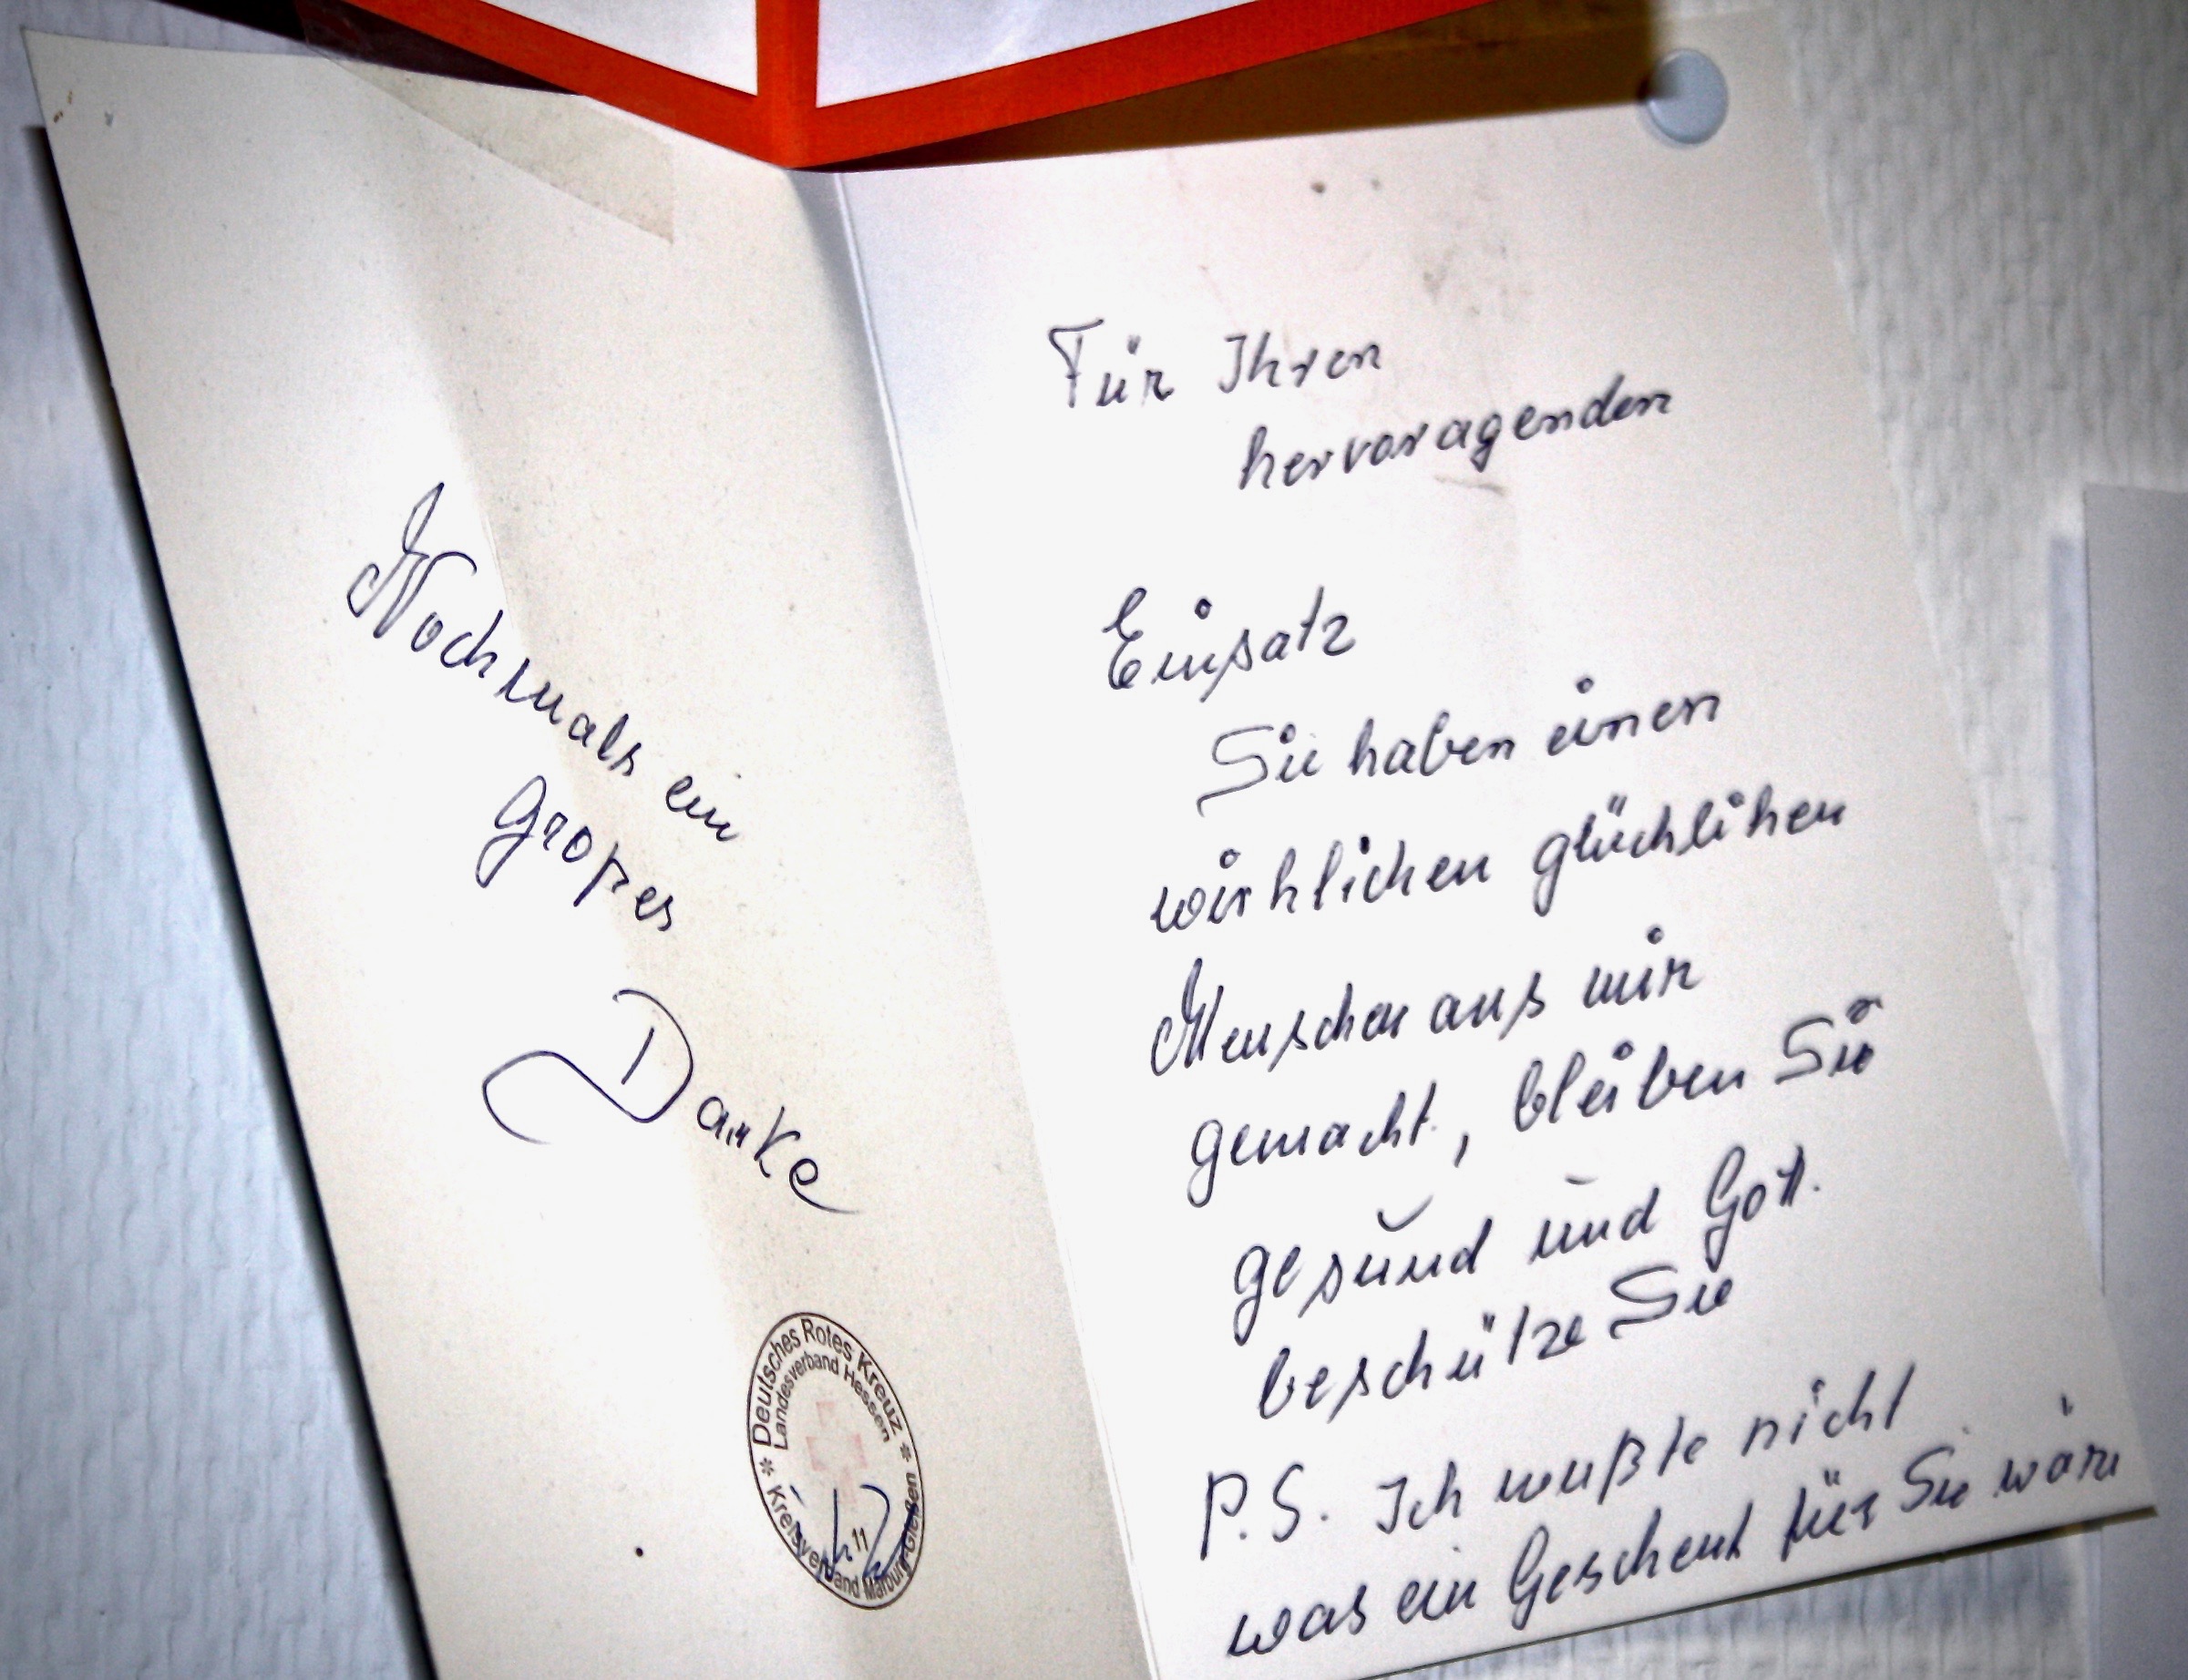 Nochmals ein
großes
Danke
Deutsches Rotes Kreuz
Landesverband Hessen
Kreisverband Marburg-Gießen
11
Für Ihren
hervoragenden
Einsatz
Sie haben einen
wirklichen glücklihen
Menschen aus mir
gemacht, bleiben Sie
gesund und Gott
beschütze Sie
P.S. Ich wußte nicht
was ein Geschenk für Sie wäre